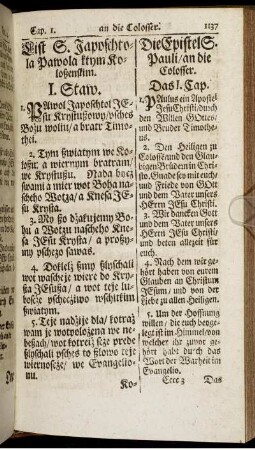 Cap. 1. an die Colosser. 1137
List S. Japoschto-
la Pawola ktym Ko-
loßenskim.
I. Staw.
1. PAwol Japoschtol JE-
su Krystußowy, psches
Bożu wolu, a bratr Timo-
thei.
2. Tym swiatym we Ko-
loßu, a wiernym bratram,
we Krystußu. Nada bocz
swami a mier wot Boha na-
scheho Wotza, a Knesa JE-
su Krysta.
3. My so dzakujemy Bo-
hu a Wotzu nascheho Kne-
sa JEsu Krysta, a proßy-
my pschezo sawas.
4. Dokielz smy slyschali
wot wascheje wiere do Kry-
sta JEsußa, a wot teje lub-
oscze pscheczivo wschitkim
swiatym.
5. Teje nadzije dla, kotraz
wam je wotpolozena we ne-
beßach, wot kotreiz scze prede
slyschali psches to slowo teje
wiernoscze, we Evangelio-
nu.
Ko-
Die Epistel S.
Pauli, an die
Colosser.
Das 1. Cap.
1. PAulus ein Apostel
JEsu Christi, durch
den Willen GOttes,
und Bruder Timotheus.
2. Den Heiligen zu
Colosse, und den Glau-
bigen Brüdern in Chri-
sto. Gnade sey mit euch,
und Friede von GOtt
und dem Vater unsers
HErrn JEsu Christi.
3. Wir dancken Gott
und dem Vater unsers
HErrn JEsu Christi,
und beten allezeit für
euch.
4. Nach dem wir ge-
hört haben von eurem
Glauben an Christum
JEsum, und von der
Liebe zu allen Heiligen.
5. Um der Hoffnung
willen, die euch beyge-
legt ist im Himmel, von
welcher ihr zuvor ge-
hört habt durch das
Wort der Warheit im
Evangelio.
Cccc 3 Das